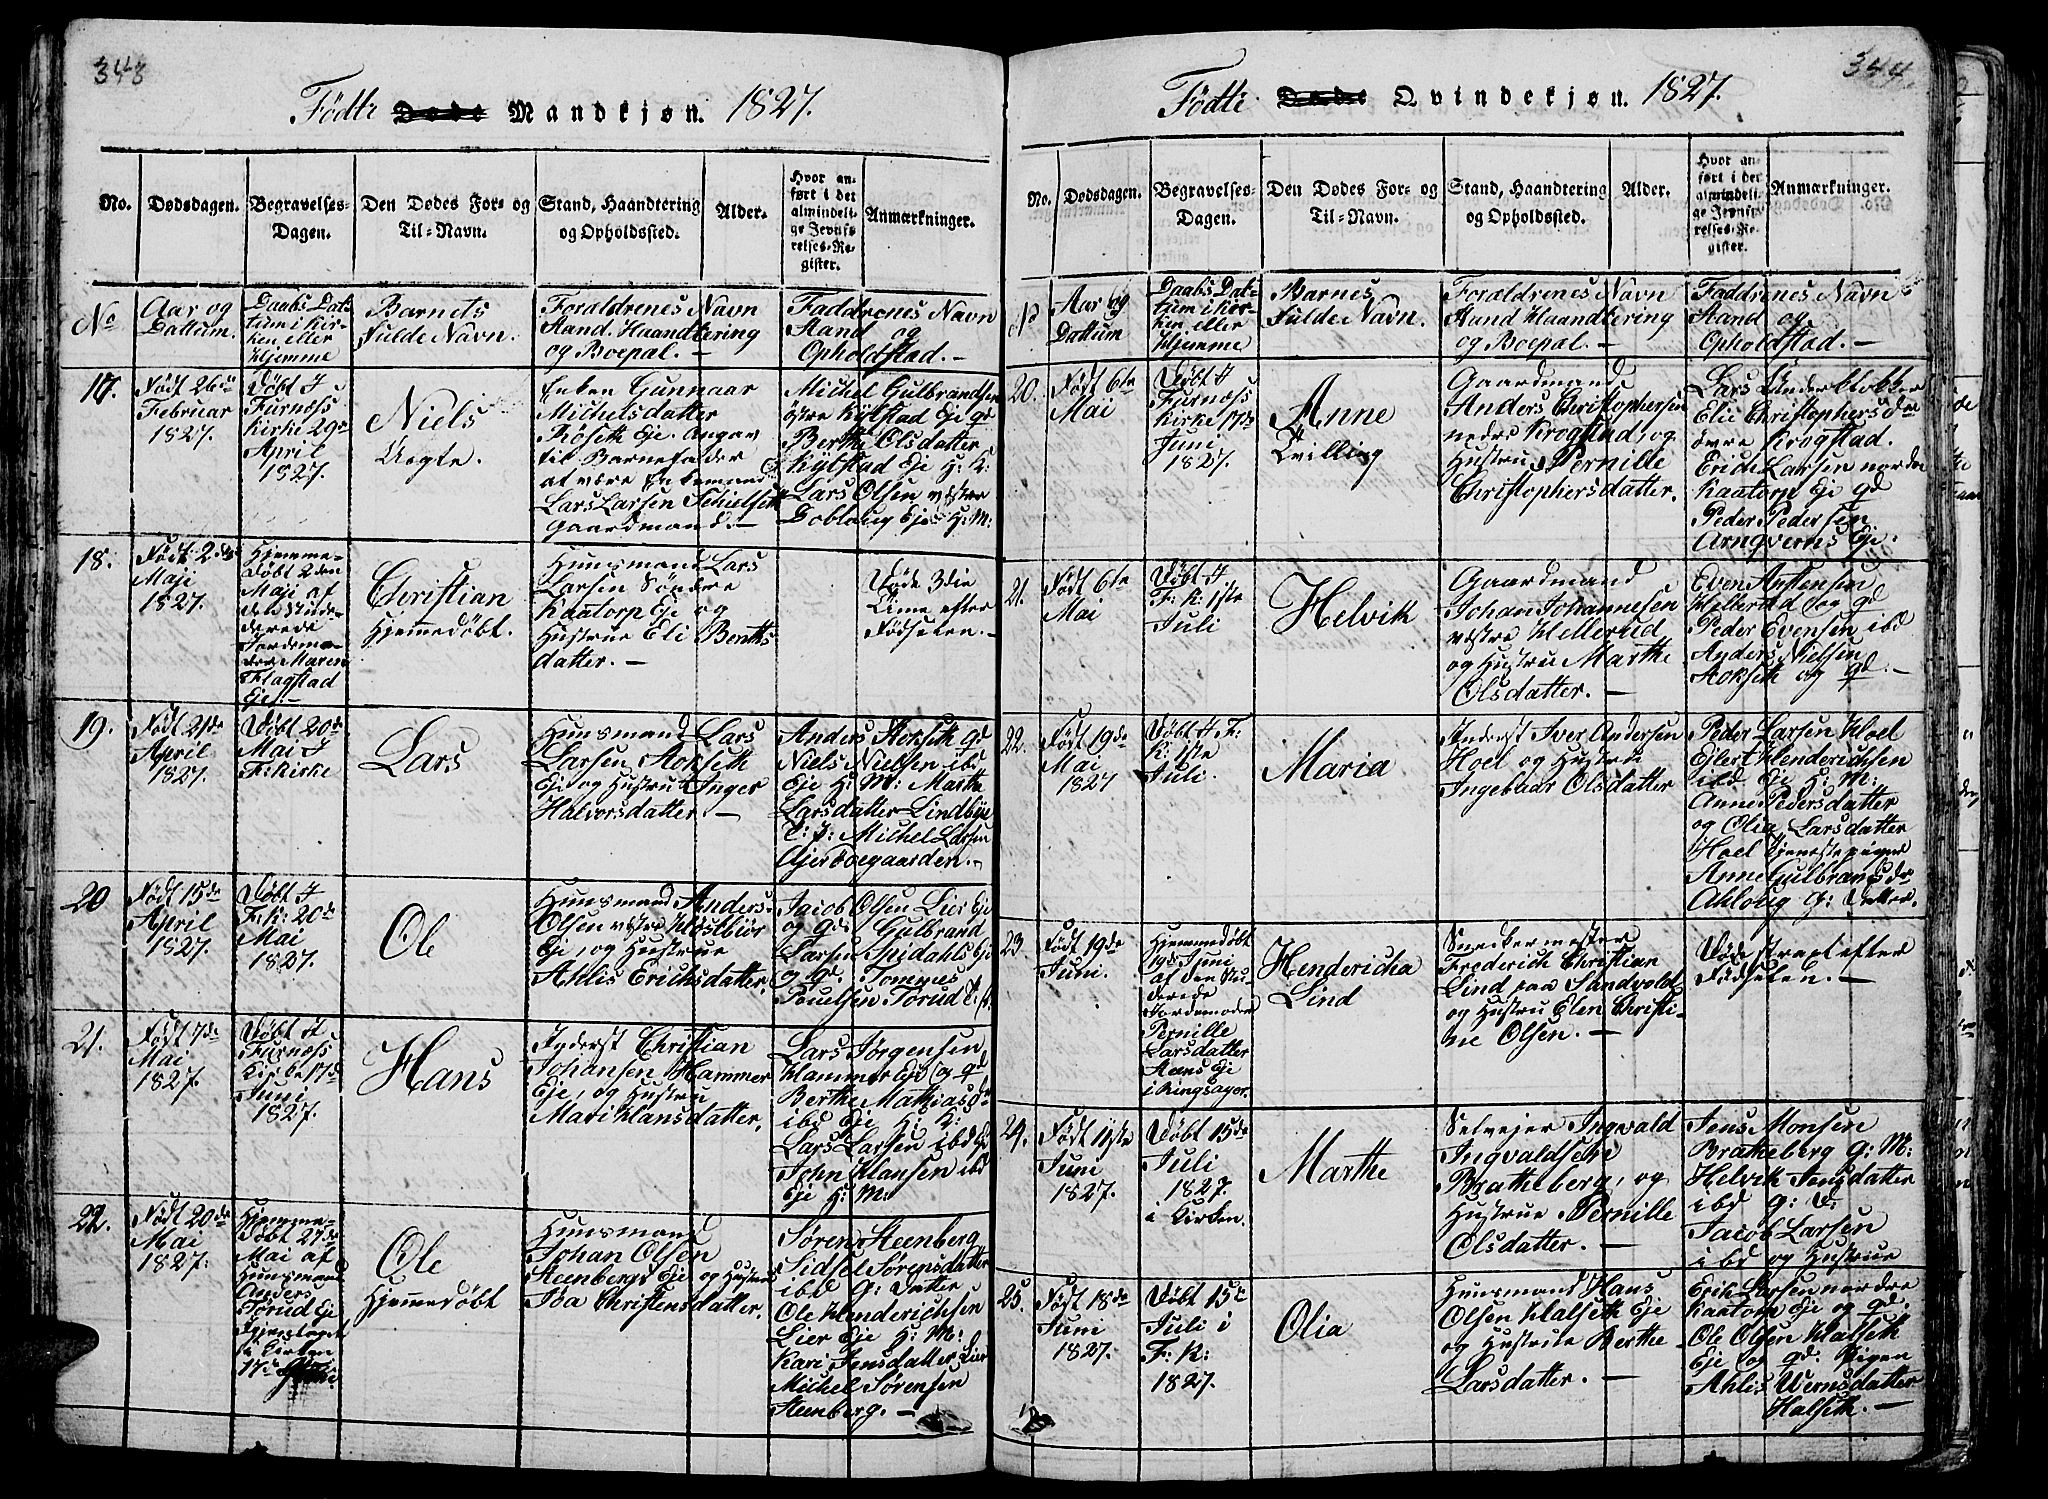 343
Fødte Døde Mandkjøn. 1827.
No.
Dødsdagen.
Begravelses-
Dagen.
Den Dødes For- og
Til-Navn.
Stand, Haandtering
og Opholdssted.
Alder.
Hvor an-
ført i det
almindeli-
ge Jevnfø-
relses-Re-
gister.
Anmærkninger.
No
Aar og
Dattum.
Daabs Dat-
tum i Kir-
ken eller
Hjemme
Barnets
fulde Navn.
Forældrenes Navn
Stand. Haandtering
og Boepal. —
Faddrenes Navn
Stand og
Opholdstad. —
17.
Født 26de
Februar
1827.
Døbt I
Furnæss
Kirke 29de
April
1827.
Niels
Uægte.
Enken Gunnaar
Michelsdatter
Røseth Eje. Angav
til Barnefader
at være Enkemand
Lars Larsen
Gaardmand. —
Michel Gulbrandsen
østre Kylstad Eje gd
Berthe Olsdatter
Kylstad Eje H: K:
Lars Olsen væstre
Dobloug Eje H: M:
18.
Født 2den
Maji
1827.
Hjemme-
Døbt 2den
Maji af
den Stude-
derede
Jordemo-
der Maren
Flagstad
Eje. —
Christian
Hjemmedøbt.
Huusmand Lars
Larsen Søndre
Kaatorp Eje og
Hustrue Eli Berths
datter. —
Døde 3die
Time efter
Fødselen. —
19.
Født 21de
April
1827.
Døbt 20de
Mai I
F: Kirke
Lars
Huusmand Lars
Larsen Stokseth
Eje og Hustru Inger
Halvorsdatter. —
Anders Stokseth gd
Niels Nielsen ibd
Eje H: M: Marthe
Larsdatter Lindbye
Michel Larsen
20
Født 15de
April
1827.
Døbt I
F: K: 20de
Mai
1827.
Ole
Huusmand Anders
Olsen væstre Kløstbiør
Eje, og Hustrue
Ahlis Erichsdatter.
Jacob Olsen Lier Eje
og gd: Gulbrand
Larsen Spidahls Eje
og gd Tommes
Poulsen Torud
21.
Født 7de
Mai
1827.
Døbt I
Furnæss
Kirke 17de
Juni
1827.
Hans
Inderst Christian
Johansen Hammer
Eje, og Hustru
Mari Hansdatter.
Lars Jørgensen
Hammer Eje og gd
Berthe Mathiasdr
ibd Eje H: K:
Lars Larsen ibd
John Hansen ibd
Eje H: M:
22.
Født 20de
Mai
1827.
Hjemme-
døbt 27de
Mai af
Huusmand
Anders
Torud Eje
i Kirken
17de
Ole
Hjemmedøbt
Huusmand
Johan Olsen
Steenbergs Eje og Hustrue
Christensdatter.
Søren Steenberg
Sidsel Sørensdatter
ibd G: Datter
Ole Henderichsen
Lier Eje H: M:
Kari Jensdatter Lier
Michel Sørensen
Steenberg. —
344
Fødte Døde Qvindekjøn. 1827.
No.
Dødsdagen.
Begravelses-
Dagen.
Den Dødes For- og
Til-Navn.
Stand, Haandtering
og Opholdssted.
Alder.
Hvor an-
ført i det
almindeli-
ge Jevnfø-
relses-Re-
gister.
Anmærkninger.
No
Aar og
Dattum
Daabs Dat-
tum i Kir-
ken eller
Hjemme
Barnes
fulde Navn.
Forældrenes Navn
Stand Haandtering
og Boepal. —
Faddrenes Navn
Stand og
Opholdstad. —
20.
Født 6te
Mai
Døbt I
Furnæss
Kirke 17de
Juni
1827.
Anne
Tvilling
Gaardmand
Anders Christophersen
nedre Krogstad, og
Hustru Pernille
Christophersdatter.
Lars Underklokker
Elie Christophersdr
øvre Krogstad.
Erich Larsen nordre
Kaatorp Eje gd
Peder Pedersen
Arnqverns Eje.
21.
Født 6te
Mai
Døbt I
F: K: 1ste
Juli
Helvik
Gaardmand
Johan Johannesen
væstre Hellerud
og Hustru Marthe
Olsdatter. —
Even Austensen
Hellerud og gd
Peder Evensen ibd
Anders Nielsen
Stokseth og gd. —
22.
Født 19de
Mai
1827
Døbt I F:
K: 1ste
Juli.
Maria
Inderst Iver Andersen
Hoel og Hustrue
Ingebaar Olsdatter
Peder Larsen Hoel
Ejlert Henderichsen
ibd Eje H: M:
Anne Pedersdatter
og Olia Larsdatter
Hoel Tjenestepiger
Anne Gulbransdr
Ahloug G: Datter.
23.
Født 19de
Juni.
Hjemmedøbt
19de Juni
af den Stu-
derede
Jordemoder
Pernille
Larsdatter
Stens Eje
i Ringsager.
Hendericha
Lind
Sneckermester
Frederich Christian
Lind paa Sandvold
og Hustru Elen Christi-
ne Olsen. —
Døde strax efter
Fødselen. —
24.
Født 11te
Juni
1827.
Døbt 15de
Juli
1827.
i Kirken.
Marthe
Selvejer Ingvald
Ingvaldsen
Bratheberg, og
Hustrue Pernille
Olsdatter. —
Jens Monsen
Bratheberg G: M:
Helvik Jensdatter
ibd G: D:
Jacob Larsen
ibd og Hustrue
25.
Født 18de
Juni
1827.
Døbt 15de
Juli i
F: K:
1827.
Olia
Huusmand Hans
Olsen Halseth Eje
og Hustrue Berthe
Larsdatter. —
Erik Larsen nordre
Kaatorp Eje og gd.
Ole Olsen Halseth
Eje og gd. Pigen
Ahlis Wernsdatter
Halseth. —